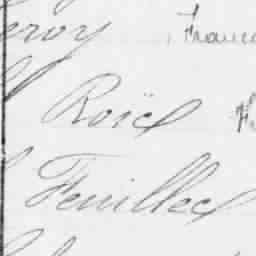 eroy Franc
Roïc F
Feuillec